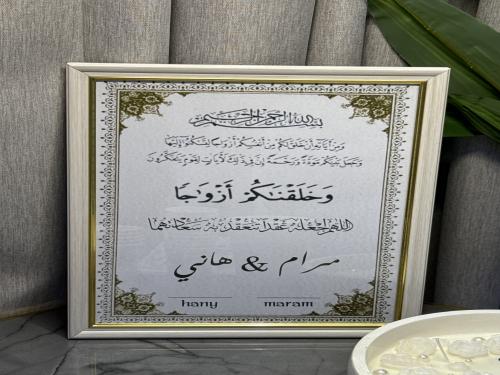 بسم الله الرحمن الرحيم
ومن آياته أن خلق لكم من أنفسكم أزواجا لتسكنوا إليها
وجعل بينكم مودة ورحمة إن في ذلك لآيات لقوم يتفكرون
وَخَلَقْنَاكُمْ أَزْوَاجًا
اللهم اجعله عقدا تنعقد به سعادتهما
مرام & هاني
hany maram